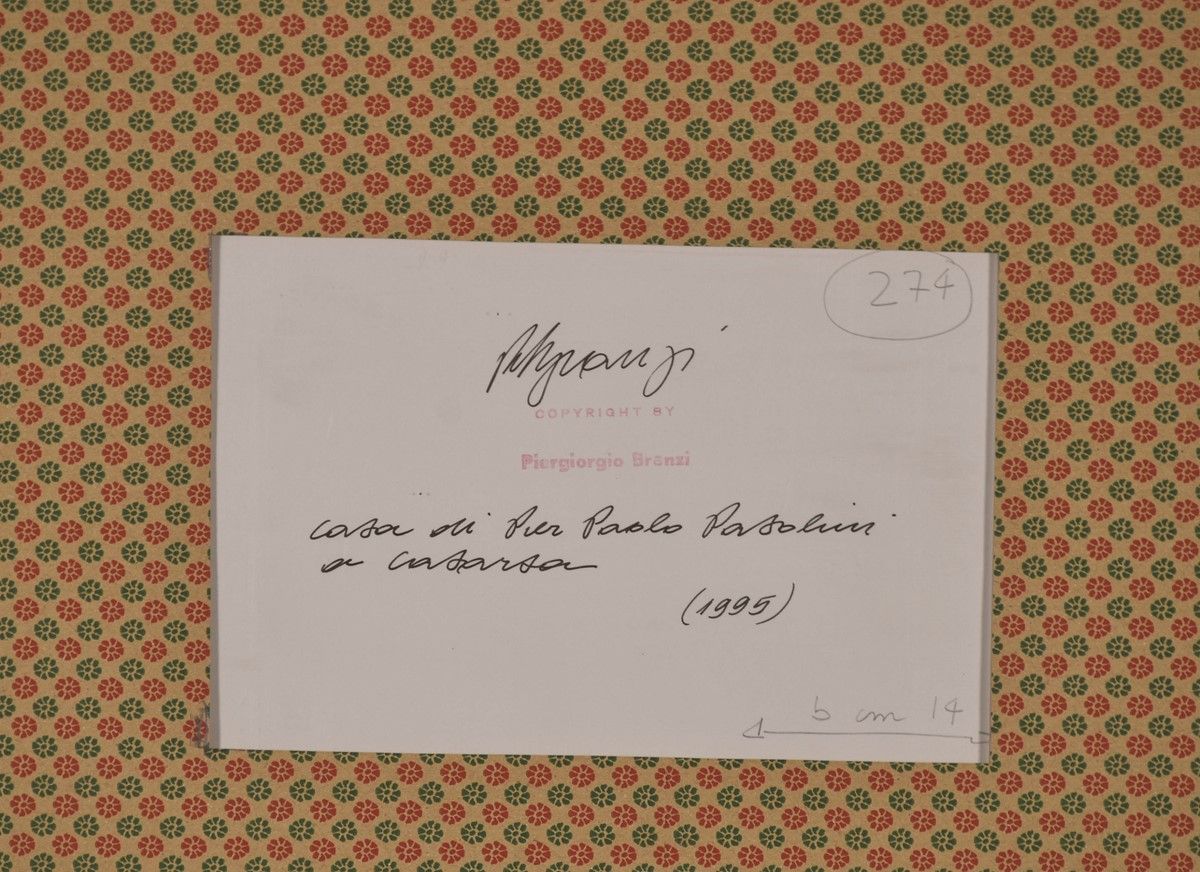 274
PBranzi
COPYRIGHT BY
Piergiorgio Branzi
casa di Pier Paolo Pasolini
a Casarsa
(1995)
b cm 14